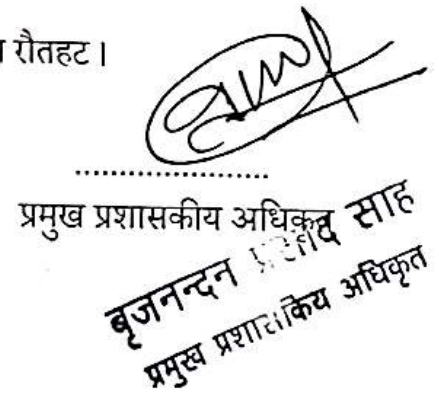 रौतहट ।
....................
प्रमुख प्रशासकीय अधिकृत
बृजनन्दन प्रसाद साह
प्रमुख प्रशासकिय अधिकृत